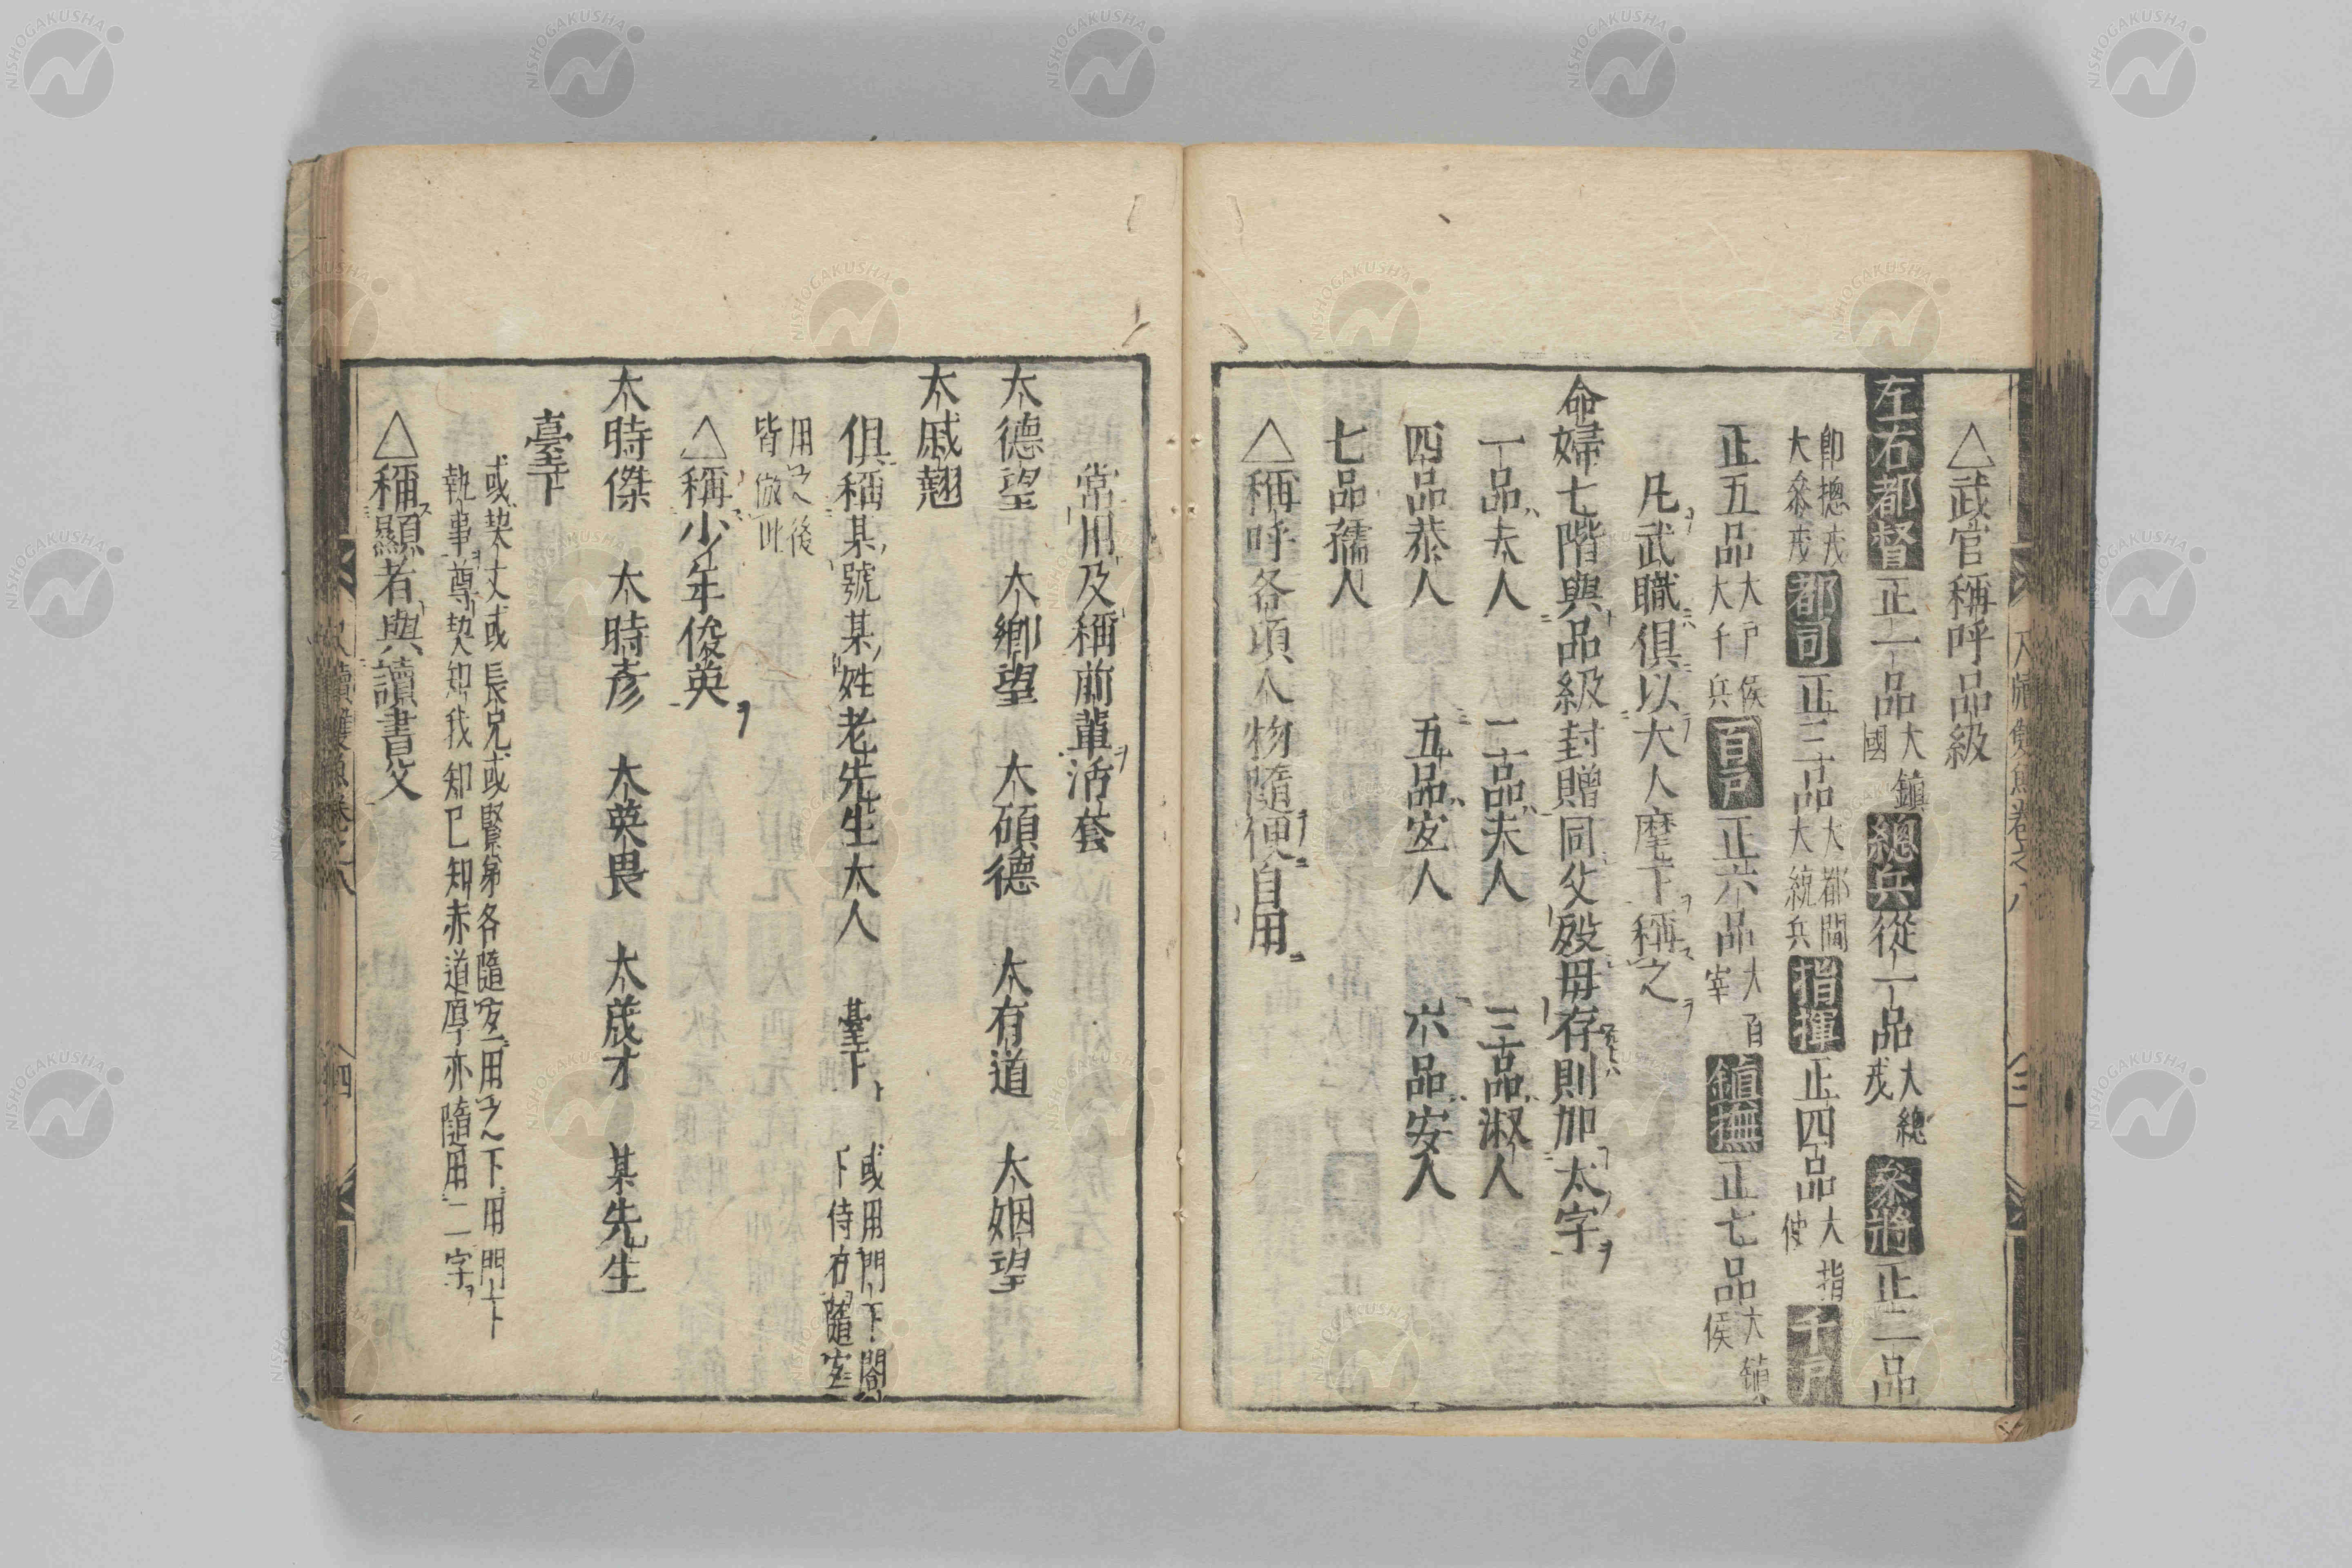 △武官稱呼品級
左右都督正一品大鎮國總兵從一品大總戎叅將正二品
即摠戎大叅戎都司正三品大都閫大統兵指揮正四品大指使千戸
正五品大戸侯大千兵百戸正六品大百宰鎮撫正七品大鎮侯
凡武職俱以大人麾下稱之
命婦七階與品級封贈同父歿母存則加太字
一品夫人 二品夫人 三品淑人
四品恭人 五品宜人 六品安人
七品孺人
△稱呼各項人物隨便自用
常用及稱前輩活套
大德望 大鄉望 大碩德 大有道 大姻望
大戚翹
俱稱某號某姓老先生大人 臺下 或用門下閣下侍右隨宜
用之後皆倣此
△稱少年俊英
大時傑 大時彥 大英畏 大茂才 某先生
臺下
或契丈或長兄或賢弟各隨宜用之下用門下
執事尊契知我知己知赤道厚亦隨用二字
△稱顯者與讀書父
尺牘雙魚卷之八 三
尺牘雙魚卷之八 四
NISHOGAKUSHA